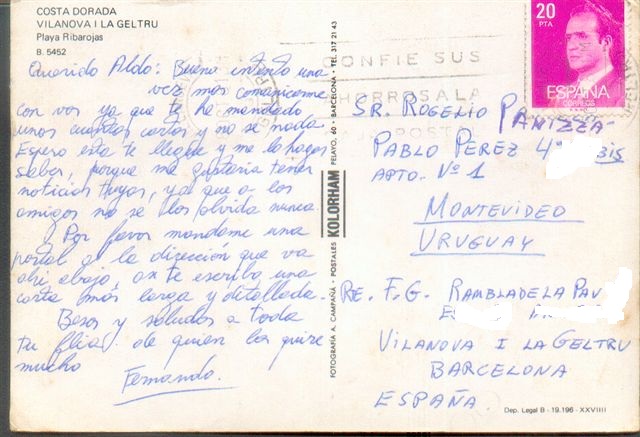 COSTA DORADA
VILANOVA I LA GELTRU
Playa Ribarojas
B. 5452
Querido Aldo: Bueno intento una
vez mas comunicarme
con vos ya que te he mandado
unos cuantas cartas y no se nada
Espero esta te llegue y me lo hagas
saber, porque me gustaria tener
noticias tuyas, ya que a los
amigos no se los olvida nunca.
Por favor mandame una
postal a la dirección que va
ahi abajo, así te escribo una
carta más larga y detallada.
Besos y saludos a toda
tu flia. de quien los quiere
mucho
Fernando.
FOTOGRAFIA A. CAMPAÑA - POSTALES KOLORHAM PELAYO, 60 - BARCELONA - TEL. 317 21 43
CONFIE SUS
AHORROS A LA
POSTAL
20
PTA
ESPAÑA
CORREOS
SR. ROGELIO PANIZZA
PABLO PEREZ 4 BIS
APTO. Nº 1
MONTEVIDEO
URUGUAY
RE. F.G. RAMBLA DE LA PAU
VILANOVA I LA GELTRU
BARCELONA
ESPAÑA.
Dep. Legal B - 19.196 - XXVIIII